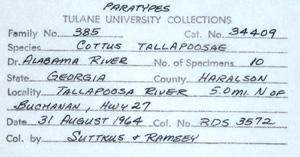 PARATYPES
TULANE UNIVERSITY COLLECTIONS
Family No. 385 Cat. No. 34409
Species COTTUS TALLAPOOSAE
Dr. ALABAMA RIVER No. of Specimens 10
State GEORGIA County HARALSON
Locality TALLAPOOSA RIVER 5.0 MI. N OF
BUCHANAN, HWY 27
Date 31 AUGUST 1964 Col. No. RDS 3572
Col. by SUTTKUS & RAMSEY